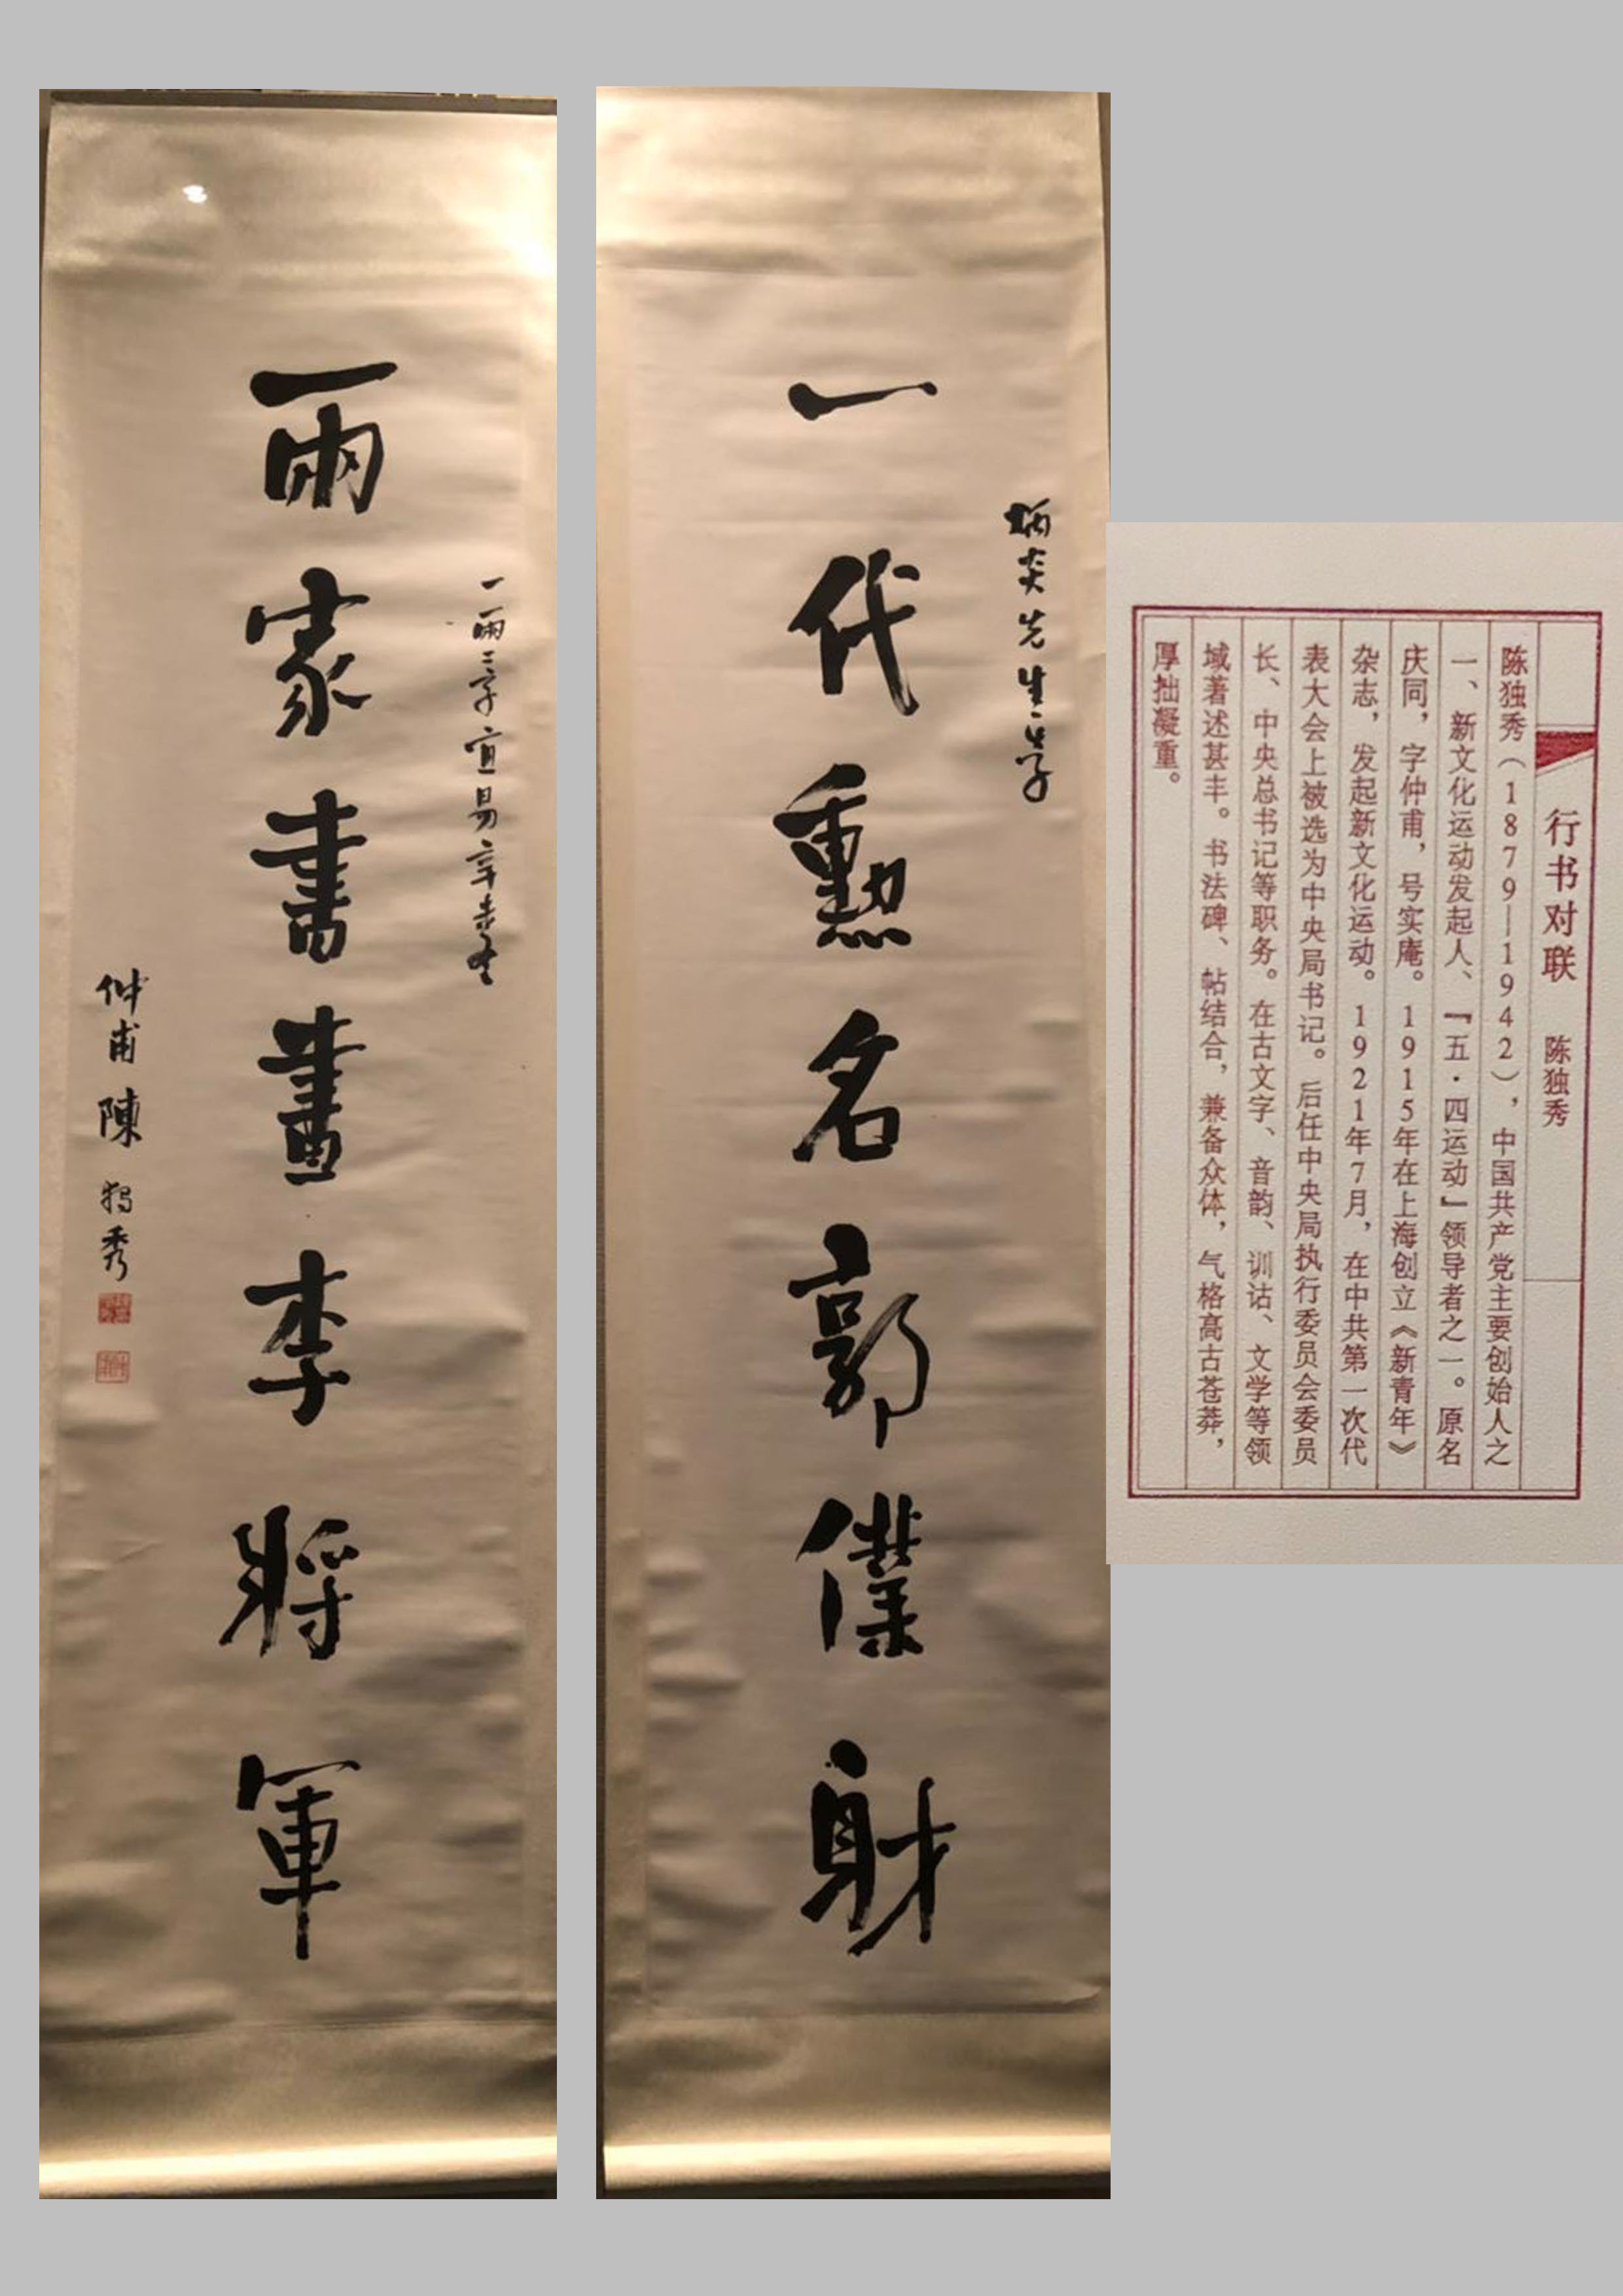 炳炎先生
一代勳名郭僕射
一兩二字宜易
兩家書畫李將軍
仲甫陳獨秀
行书对联 陈独秀
陈独秀（1879—1942），中国共产党主要创始人之
一、新文化运动发起人、『五·四运动』领导者之一。原名
庆同，字仲甫，号实庵。1915年在上海创立《新青年》
杂志，发起新文化运动。1921年7月，在中共第一次代
表大会上被选为中央局书记。后任中央局执行委员会委员
长、中央总书记等职务。在古文字、音韵、训诂、文学等领
域著述甚丰。书法碑、帖结合，兼备众体，气格高古苍莽，
厚拙凝重。